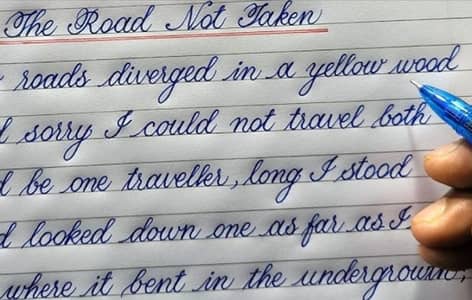 The Road Not Taken
roads diverged in a yellow wood
sorry I could not travel both
be one traveller, long I stood
looked down one as far as I
where it bent in the undergrowth;